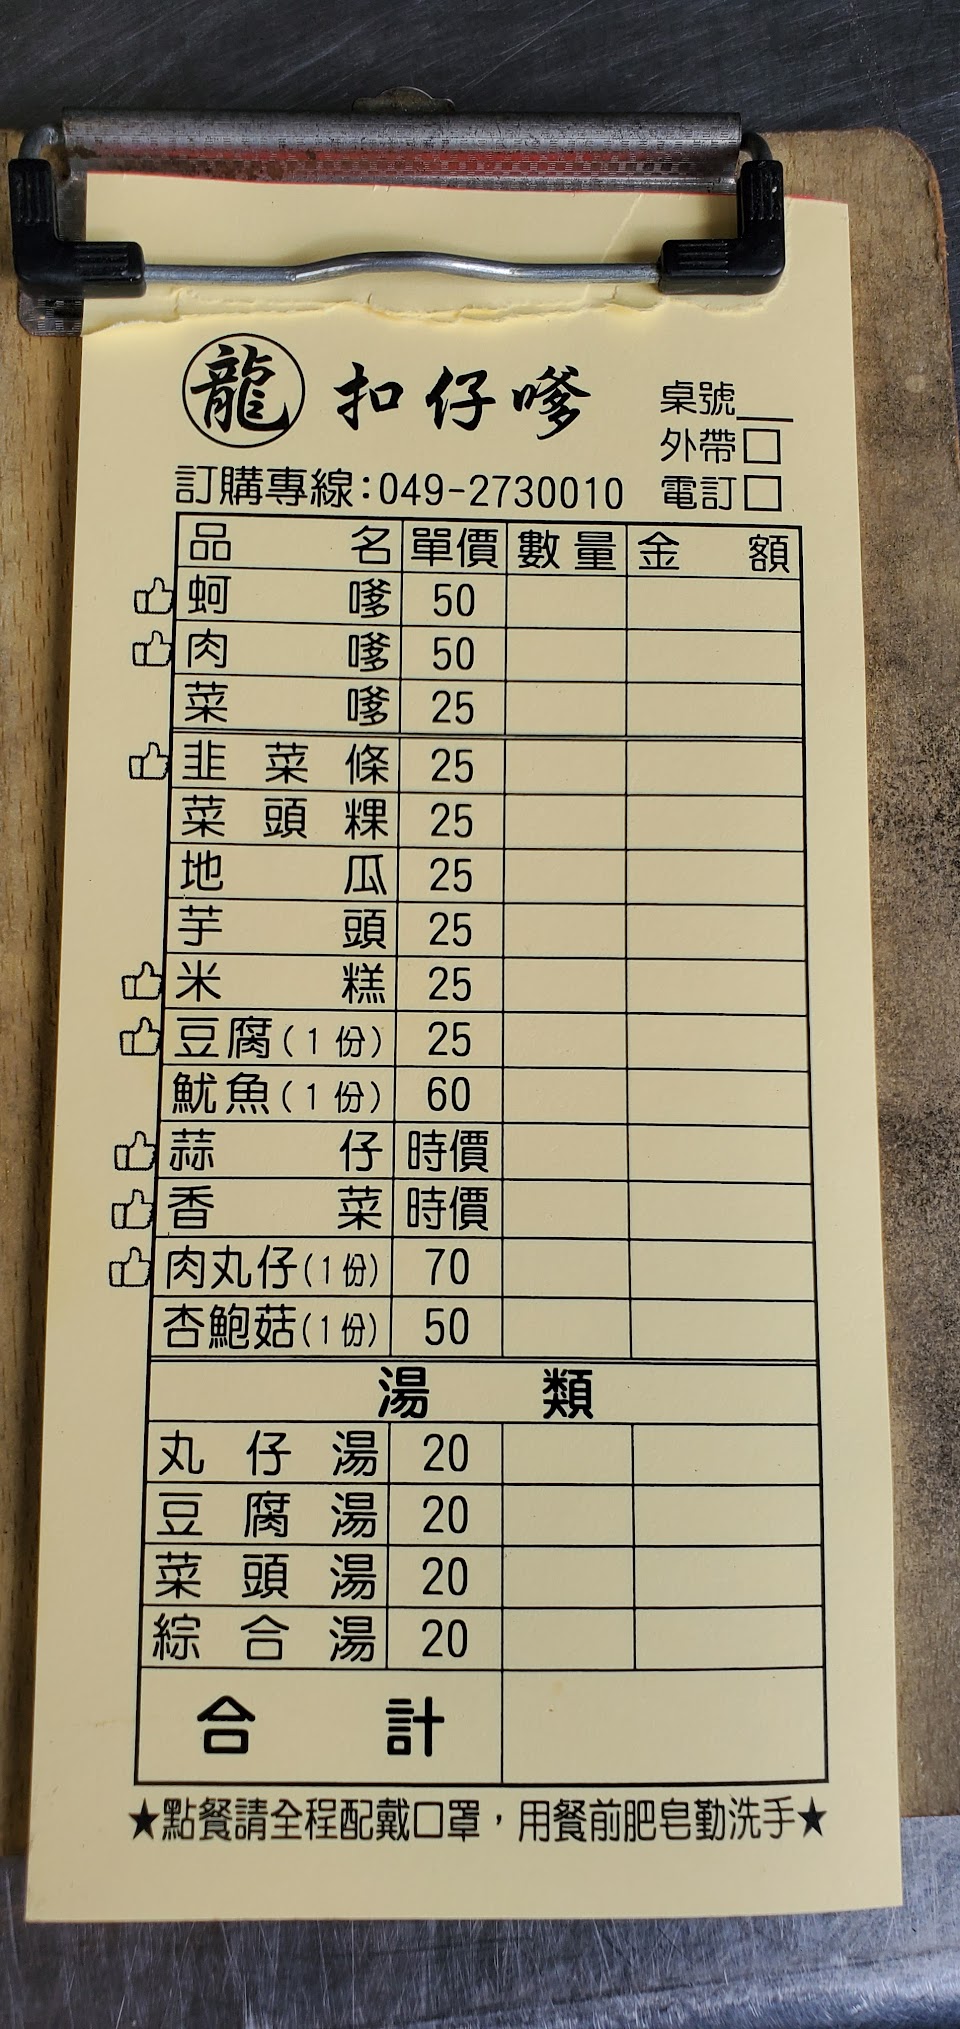 龍 扣仔嗲 桌號__
外帶□
訂購專線:049-2730010 電訂□
品名 單價 數量 金額
蚵嗲 50
肉嗲 50
菜嗲 25
韭菜條 25
菜頭粿 25
地瓜 25
芋頭 25
米糕 25
豆腐(1份) 25
魷魚(1份) 60
蒜仔 時價
香菜 時價
肉丸仔(1份) 70
杏鮑菇(1份) 50
湯類
丸仔湯 20
豆腐湯 20
菜頭湯 20
綜合湯 20
合計
★點餐請全程配戴口罩，用餐前肥皂勤洗手★